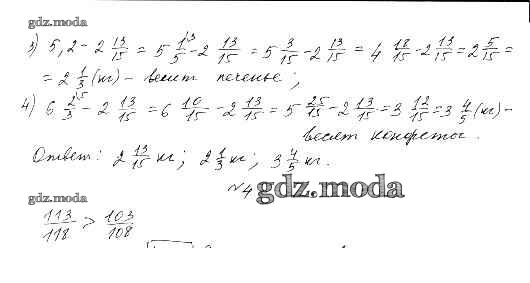 gdz.moda
3) 5,2 - 2 13/15 = 5 1/5 ^3 - 2 13/15 = 5 3/15 - 2 13/15 = 4 18/15 - 2 13/15 = 2 5/15 =
= 2 1/3 (кг) - весит печенье;
4) 6 2/3 ^5 - 2 13/15 = 6 10/15 - 2 13/15 = 5 25/15 - 2 13/15 = 3 12/15 = 3 4/5 (кг) -
весят конфеты.
Ответ: 2 13/15 кг; 2 1/3 кг; 3 4/5 кг.
№4
gdz.moda
gdz.moda
113/118 > 103/108